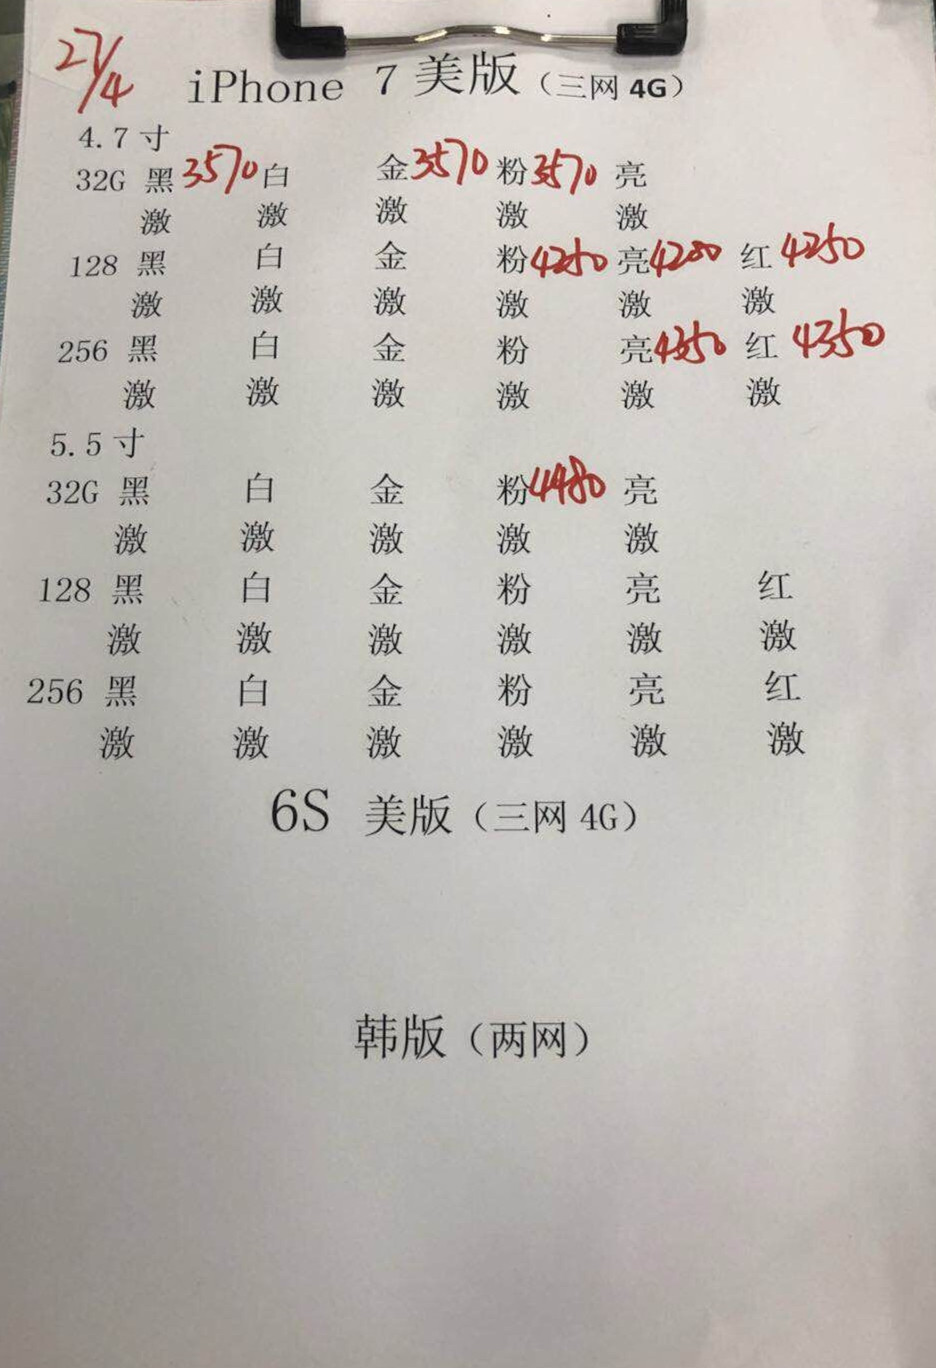 27/4
iPhone 7 美版（三网 4G）
4.7 寸
32G 黑 3570 白 金 3570 粉 3570 亮
激 激 激 激 激
128 黑 白 金 粉 4250 亮 4200 红 4250
激 激 激 激 激 激
256 黑 白 金 粉 亮 4350 红 4350
激 激 激 激 激 激
5.5 寸
32G 黑 白 金 粉 4480 亮
激 激 激 激 激
128 黑 白 金 粉 亮 红
激 激 激 激 激 激
256 黑 白 金 粉 亮 红
激 激 激 激 激 激
6S 美版（三网 4G）
韩版（两网）